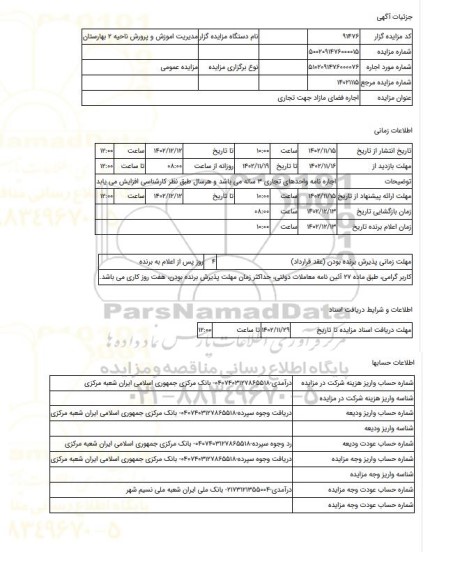 جزئیات آگهی
کد مزایده گزار ۹۱۴۷۶ نام دستگاه مزایده گزار مدیریت اموزش و پرورش ناحیه ۲ بهارستان
شماره مزایده ۵۰۰۲۰۹۱۴۷۶۰۰۰۰۱۵
شماره مورد اجاره ۵۱۰۲۰۹۱۴۷۶۰۰۰۰۷۶ نوع برگزاری مزایده مزایده عمومی
شماره مزایده مرجع ۱۴۰۲۱۱۱۵
عنوان مزایده اجاره فضای مازاد جهت تجاری
اطلاعات زمانی
تاریخ انتشار از تاریخ ۱۴۰۲/۱۱/۱۵ ساعت ۱۰:۰۰ تا تاریخ ۱۴۰۲/۱۲/۱۲ ساعت ۱۲:۰۰
مهلت بازدید از ۱۴۰۲/۱۱/۱۶ تا تاریخ ۱۴۰۲/۱۱/۱۹ روزانه از ساعت ۰۸:۰۰ تا ساعت ۱۲:۰۰
توضیحات اجاره نامه واحدهای تجاری ۳ ساله می باشد و هرسال طبق نظر کارشناسی افزایش می یابد
مهلت ارائه پیشنهاد از تاریخ ۱۴۰۲/۱۱/۱۵ ساعت ۱۰:۰۰ تا تاریخ ۱۴۰۲/۱۲/۱۲ ساعت ۱۲:۰۰
زمان بازگشایی تاریخ ۱۴۰۲/۱۲/۱۳ ساعت ۰۸:۰۰
زمان اعلام برنده تاریخ ۱۴۰۲/۱۲/۱۳ ساعت ۱۰:۰۰
مهلت زمانی پذیرش برنده بودن (عقد قرارداد) ۴ روز پس از اعلام به برنده
کاربر گرامی، طبق ماده ۲۷ آئین نامه معاملات دولتی، حداکثر زمان مهلت پذیرش برنده بودن، هفت روز کاری می باشد.
اطلاعات و شرایط دریافت اسناد
ParsNamadData
مهلت دریافت اسناد مزایده تا تاریخ ۱۴۰۲/۱۱/۲۹ تا ساعت ۱۲:۰۰
پایگاه اطلاع رسانی مناقصه و مزایده
اطلاعات حسابها
شماره حساب واریز هزینه شرکت در مزایده درآمدی-۰۴۰۷۴۰۳۱۲۷۸۶۵۵۱۸- بانک مرکزی جمهوری اسلامی ایران شعبه مرکزی
شناسه واریز هزینه شرکت در مزایده
شماره حساب واریز ودیعه دریافت وجوه سپرده-۰۴۰۷۴۰۳۱۲۷۸۶۵۵۱۸- بانک مرکزی جمهوری اسلامی ایران شعبه مرکزی
شناسه واریز ودیعه
شماره حساب عودت ودیعه رد وجوه سپرده-۰۴۰۷۴۰۳۱۲۷۸۶۵۵۱۸- بانک مرکزی جمهوری اسلامی ایران شعبه مرکزی
شماره حساب واریز وجه مزایده دریافت وجوه سپرده-۰۴۰۷۴۰۳۱۲۷۸۶۵۵۱۸- بانک مرکزی جمهوری اسلامی ایران شعبه مرکزی
شناسه واریز وجه مزایده
شماره حساب عودت وجه مزایده درآمدی-۲۱۷۳۱۲۱۳۵۵۰۰۴- بانک ملی ایران شعبه ملی نسیم شهر
شماره حساب عودت وجه مزایده